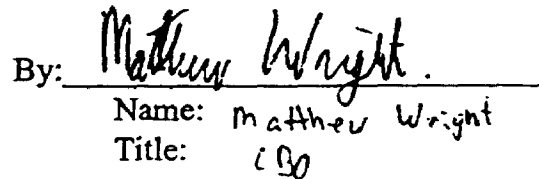 By: Matthew Wright.
Name: Matthew Wright
Title: iBO